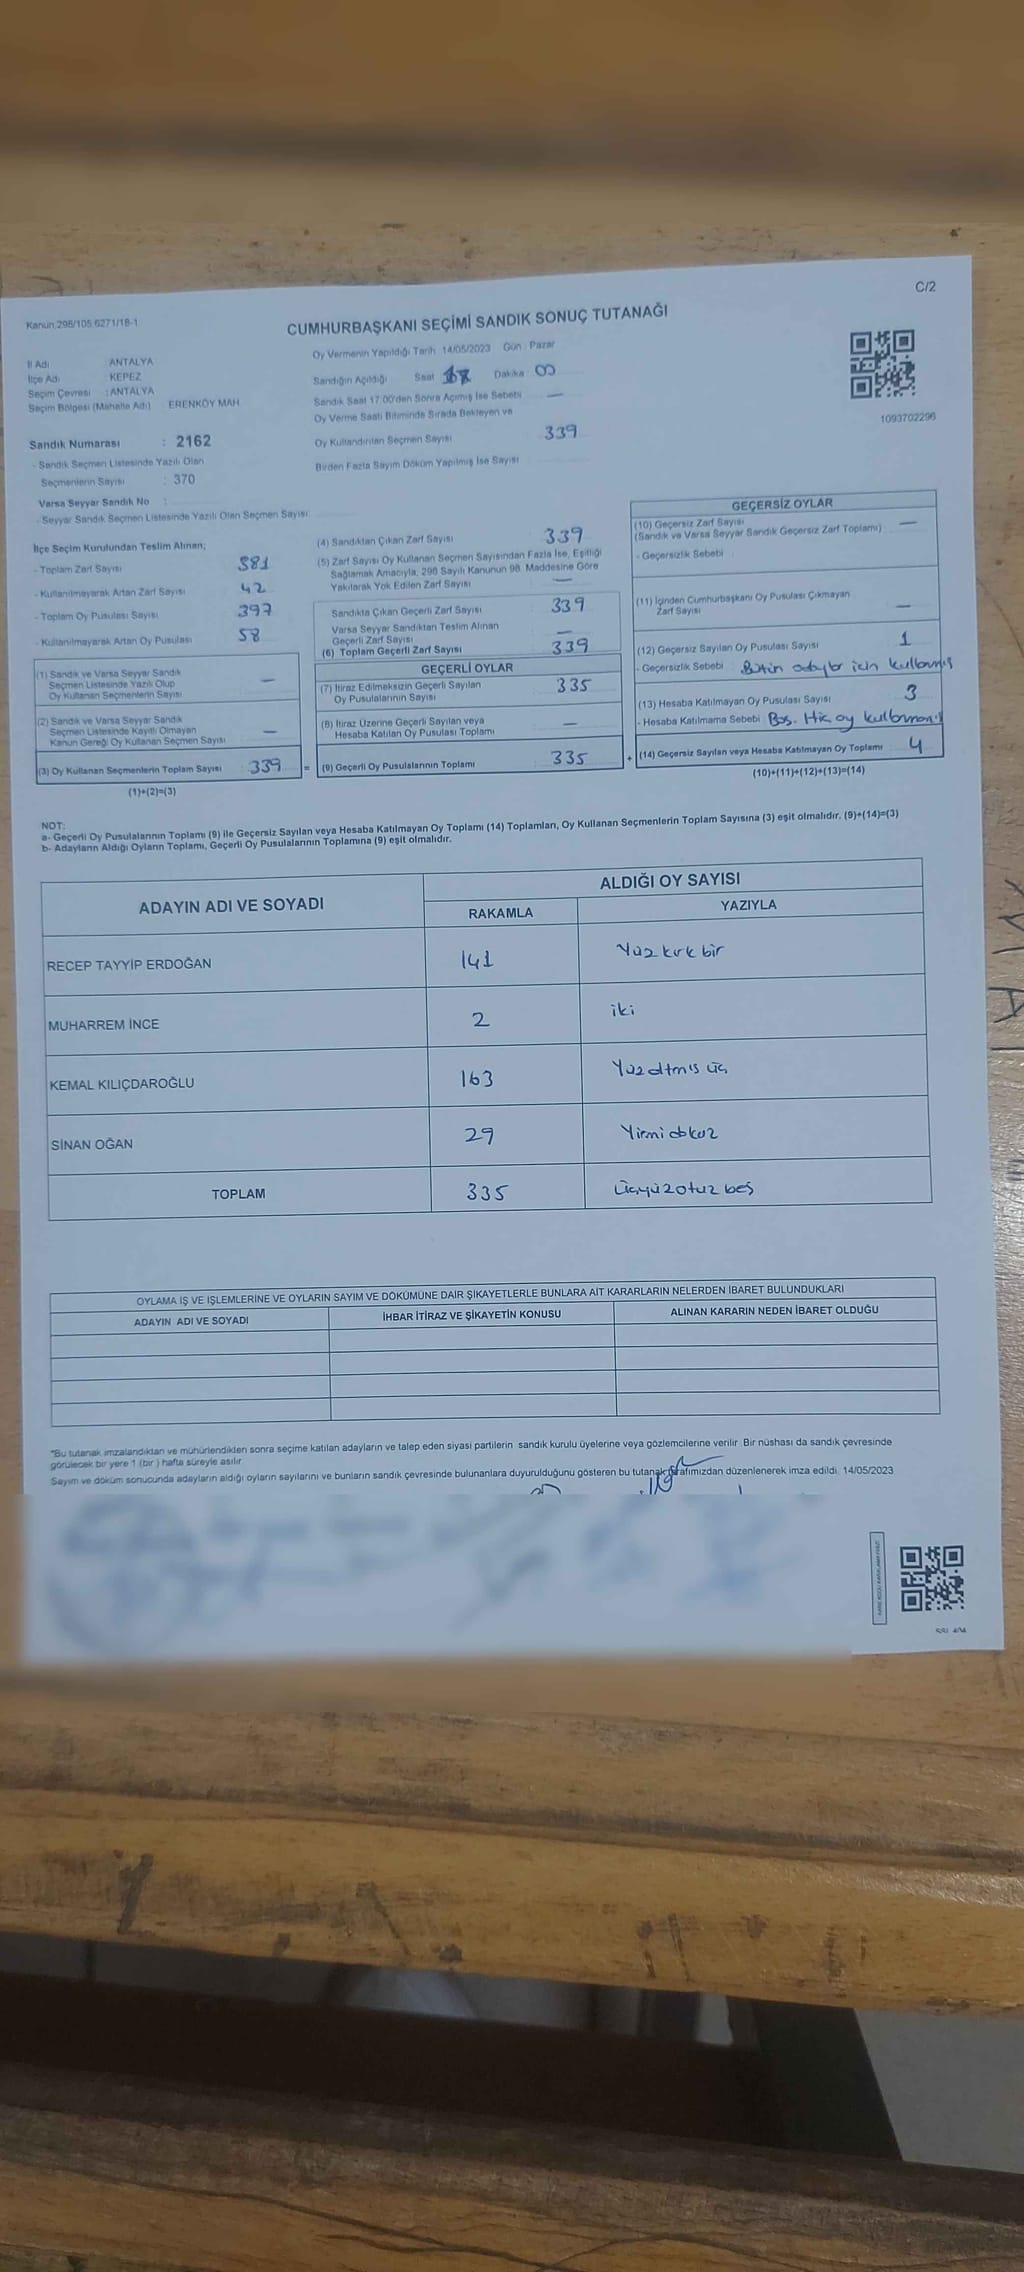 C/2
Kanun.298/105.6271/18-1
CUMHURBAŞKANI SEÇİMİ SANDIK SONUÇ TUTANAĞI
İl Adı : ANTALYA
İlçe Adı : KEPEZ
Seçim Çevresi : ANTALYA
Seçim Bölgesi (Mahalle Adı) : ERENKÖY MAH.
Sandık Numarası : 2162
- Sandık Seçmen Listesinde Yazılı Olan
Seçmenlerin Sayısı : 370
Varsa Seyyar Sandık No :
- Seyyar Sandık Seçmen Listesinde Yazılı Olan Seçmen Sayısı
Oy Vermenin Yapıldığı Tarih 14/05/2023 Gün : Pazar
Sandığın Açıldığı Saat Dakika 00
Sandık Saat 17:00'den Sonra Açımış İse Sebebi —
Oy Verme Saati Bitiminde Sırada Bekleyen ve
Oy Kullandırılan Seçmen Sayısı 339
Birden Fazla Sayım Döküm Yapılmış İse Sayısı
1093702296
İlçe Seçim Kurulundan Teslim Alınan;
- Toplam Zarf Sayısı 381
- Kullanılmayarak Artan Zarf Sayısı 42
- Toplam Oy Pusulası Sayısı 397
- Kullanılmayarak Artan Oy Pusulası 58
(1) Sandık ve Varsa Seyyar Sandık
Seçmen Listesinde Yazılı Olup
Oy Kullanan Seçmenlerin Sayısı —
(2) Sandık ve Varsa Seyyar Sandık
Seçmen Listesinde Kayıtlı Olmayan
Kanun Gereği Oy Kullanan Seçmen Sayısı —
(3) Oy Kullanan Seçmenlerin Toplam Sayısı : 339
(1)+(2)=(3)
(4) Sandıktan Çıkan Zarf Sayısı 339
(5) Zarf Sayısı Oy Kullanan Seçmen Sayısından Fazla İse, Eşitliği
Sağlamak Amacıyla, 298 Sayılı Kanunun 98. Maddesine Göre
Yakılarak Yok Edilen Zarf Sayısı —
Sandıkta Çıkan Geçerli Zarf Sayısı 339
Varsa Seyyar Sandıktan Teslim Alınan
Geçerli Zarf Sayısı —
(6) Toplam Geçerli Zarf Sayısı 339
GEÇERLİ OYLAR
(7) İtiraz Edilmeksizin Geçerli Sayılan
Oy Pusulalarının Sayısı 335
(8) İtiraz Üzerine Geçerli Sayılan veya
Hesaba Katılan Oy Pusulası Toplamı —
= (9) Geçerli Oy Pusulalarının Toplamı 335
GEÇERSİZ OYLAR
(10) Geçersiz Zarf Sayısı —
(Sandık ve Varsa Seyyar Sandık Geçersiz Zarf Toplamı)
- Geçersizlik Sebebi
(11) İçinden Cumhurbaşkanı Oy Pusulası Çıkmayan
Zarf Sayısı —
(12) Geçersiz Sayılan Oy Pusulası Sayısı 1
- Geçersizlik Sebebi Bütün adaylar için kullanmış
(13) Hesaba Katılmayan Oy Pusulası Sayısı 3
- Hesaba Katılmama Sebebi Boş. Hiç oy
+ (14) Geçersiz Sayılan veya Hesaba Katılmayan Oy Toplamı 4
(10)+(11)+(12)+(13)=(14)
NOT:
a- Geçerli Oy Pusulalarının Toplamı (9) ile Geçersiz Sayılan veya Hesaba Katılmayan Oy Toplamı (14) Toplamları, Oy Kullanan Seçmenlerin Toplam Sayısına (3) eşit olmalıdır. (9)+(14)=(3)
b- Adayların Aldığı Oyların Toplamı, Geçerli Oy Pusulalarının Toplamına (9) eşit olmalıdır.
ADAYIN ADI VE SOYADI ALDIĞI OY SAYISI
RAKAMLA YAZIYLA
RECEP TAYYİP ERDOĞAN 141 Yüz kırk bir
MUHARREM İNCE 2 iki
KEMAL KILIÇDAROĞLU 163 Yüz altmış üç
SİNAN OĞAN 29 Yirmi dokuz
TOPLAM 335 üçyüzotuz beş
OYLAMA İŞ VE İŞLEMLERİNE VE OYLARIN SAYIM VE DÖKÜMÜNE DAİR ŞİKAYETLERLE BUNLARA AİT KARARLARIN NELERDEN İBARET BULUNDUKLARI
ADAYIN ADI VE SOYADI İHBAR İTİRAZ VE ŞİKAYETİN KONUSU ALINAN KARARIN NEDEN İBARET OLDUĞU
*Bu tutanak imzalandıktan ve mühürlendikten sonra seçime katılan adayların ve talep eden siyasi partilerin sandık kurulu üyelerine veya gözlemcilerine verilir. Bir nüshası da sandık çevresinde
görülecek bir yere 1 (bir) hafta süreyle asılır.
Sayım ve döküm sonucunda adayların aldığı oyların sayılarını ve bunların sandık çevresinde bulunanlara duyurulduğunu gösteren bu tutanak tarafımızdan düzenlenerek imza edildi. 14/05/2023